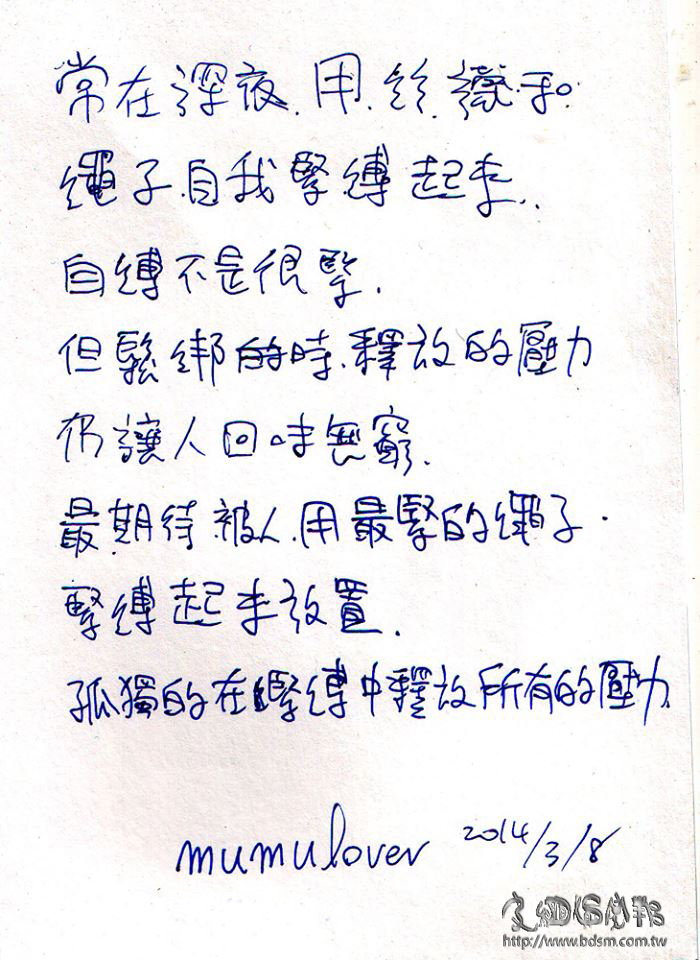 常在深夜.用.絲襪.和
繩子.自我緊縛起來..
自縛不是很緊.
但鬆綁的時.釋放的壓力
仍讓人回味無窮.
最期待被人.用最緊的繩子.
緊縛起來放置.
孤獨的在緊縛中釋放所有的壓力
mumulover 2014/3/8
http://www.bdsm.com.tw